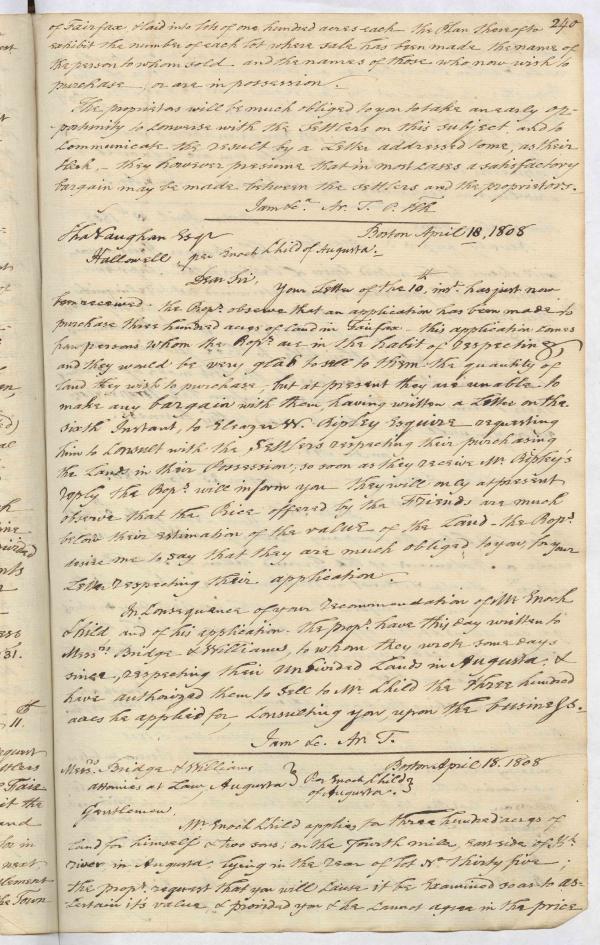 240
of Fairfax, & laid into lots of one hundred acres each the Plan thereof to
exhibit the number of each lot where sale has been made the name of
the person to whom sold and the names of those who now wish to
purchase, or are in possession.
The proprietors will be much obliged to you to take an early op-
portunity to converse with the Settlers on this subject and to
communicate the result by a Letter addressed to me, as their
Clerk, – they however presume that in most cases a satisfactory
bargain may be made between the settlers and the proprietors.
I am &c. Ar. T. P. Clk
Boston April 18, 1808
Tho Vaughan Esqr
Hallowell per Enoch Child of Augusta.
Dear Sir,
Your Letter of the 10th inst. has just now
been received. the Propr. observe that an application has been made to
purchase three hundred acres of land in Fairfax – this application comes
from persons whom the Propr. are in the habit of respecting
and they would be very glad to sell to them the quantity of
land they wish to purchase, but at present they are unable to
make any bargain with them, having written a Letter on the
sixth Instant, to Eleazer W. Ripley Esquire requesting
him to consult with the Settlers respecting their purchasing
the Land in their Possession, so soon as they receive Mr Ripley's
reply the Propr. will inform you they will only at present
observe that the Price offered by the Friends are much
below their estimation of the value of the Land – the Propr.
desire me to say that they are much obliged to you, for your
Letter respecting their application.
In Consequence of your recommendation of Mr Enoch
Child and of his application. the propr. have this day written to
Messrs Bridge & Williams, to whom they wrote some days
since, respecting their undivided Lands in Augusta, &
have authorized them to sell to Mr Child the three hundred
acres he applied for, consulting you, upon the business.
I am &c. Ar. T.
Boston April 18. 1808
Messrs Bridge & Williams
attornies at Law, Augusta } Per Enoch Child
of Augusta. }
Gentlemen.
Mr Enoch Child applies for three hundred acres of
Land for himself & two sons; on the Fourth mile, east side of
river in Augusta, lying in the rear of lot No thirty five;
the propr. request that you will cause it be examined so as to as-
certain it's value & provided you & he cannot agree in the price